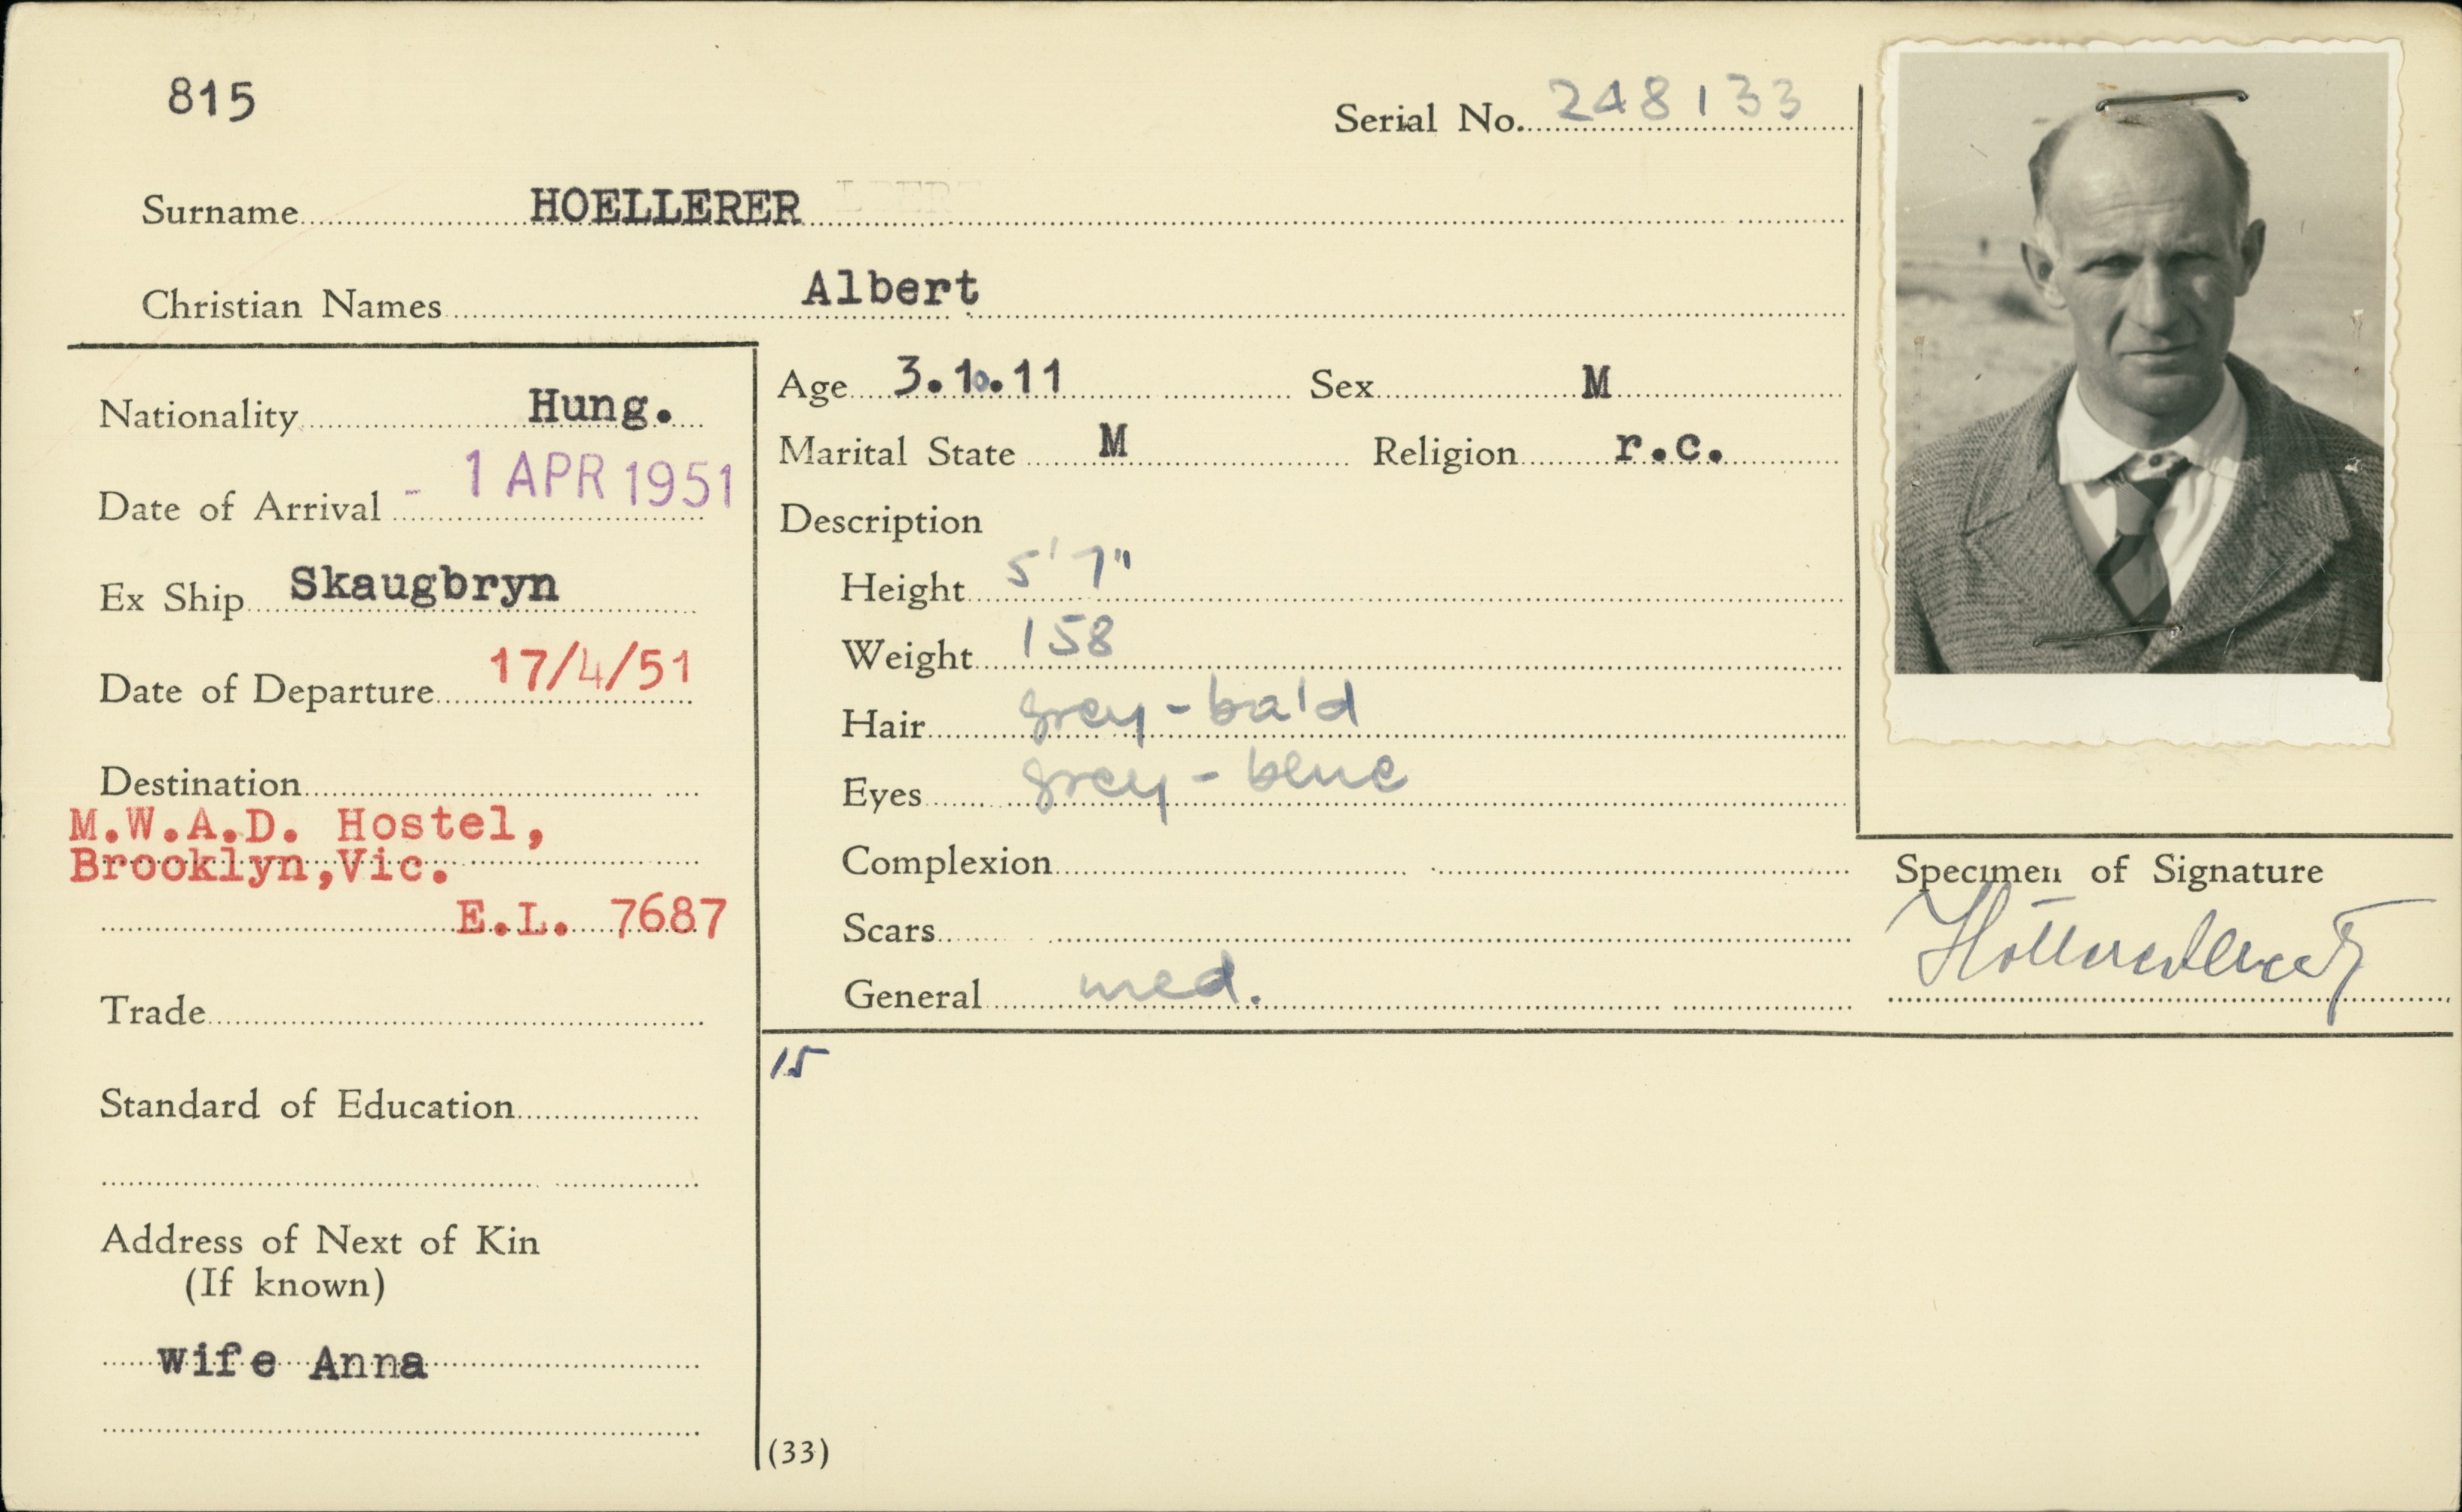 815
Serial No. 248133
Surname HOELLERER
Christian Names Albert
Nationality Hung.
Date of Arrival - 1 APR 1951
Ex Ship Skaugbryn
Date of Departure 17/4/51
Destination
M.W.A.D. Hostel,
Brooklyn,Vic.
E.L. 7687
Trade
Standard of Education
Address of Next of Kin
(If known)
Wife Anna
Age 3.10.11 Sex M
Marital State M Religion r.c.
Description
Height 5'7"
Weight 158
Hair grey-bald
Eyes grey-blue
Complexion
Scars
General med.
Specimen of Signature
15
(33)